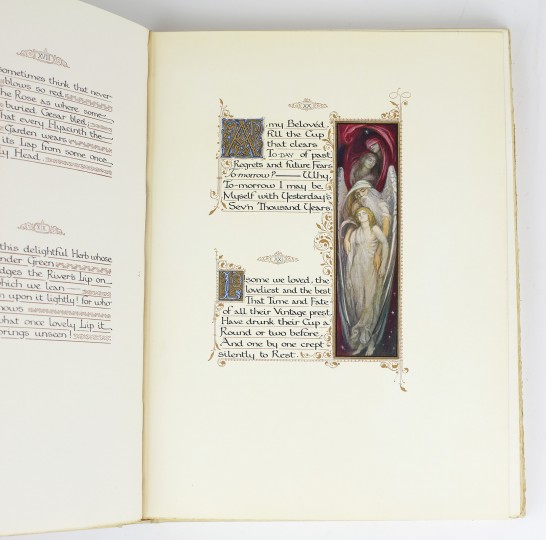 XVIII
sometimes think that never
blows so red
the Rose as where some
buried Cæsar bled
that every Hyacinth the
Garden wears
its Lap from some once
ly Head
XIX
this delightful Herb whose
nder Green
edges the River's Lip on
which we lean
n upon it lightly! for who
nows
what once lovely Lip it
prings unseen!
XX
A, my Belovéd,
fill the Cup
that clears
TO-DAY of past
Regrets and future Fears
To-morrow? Why,
To-morrow I may be
Myself with Yesterday's
Sev'n Thousand Years.
XXI
some we loved, the
loveliest and the best
That Time and Fate
of all their Vintage prest
Have drunk their Cup a
Round or two before,
And one by one crept
silently to Rest.